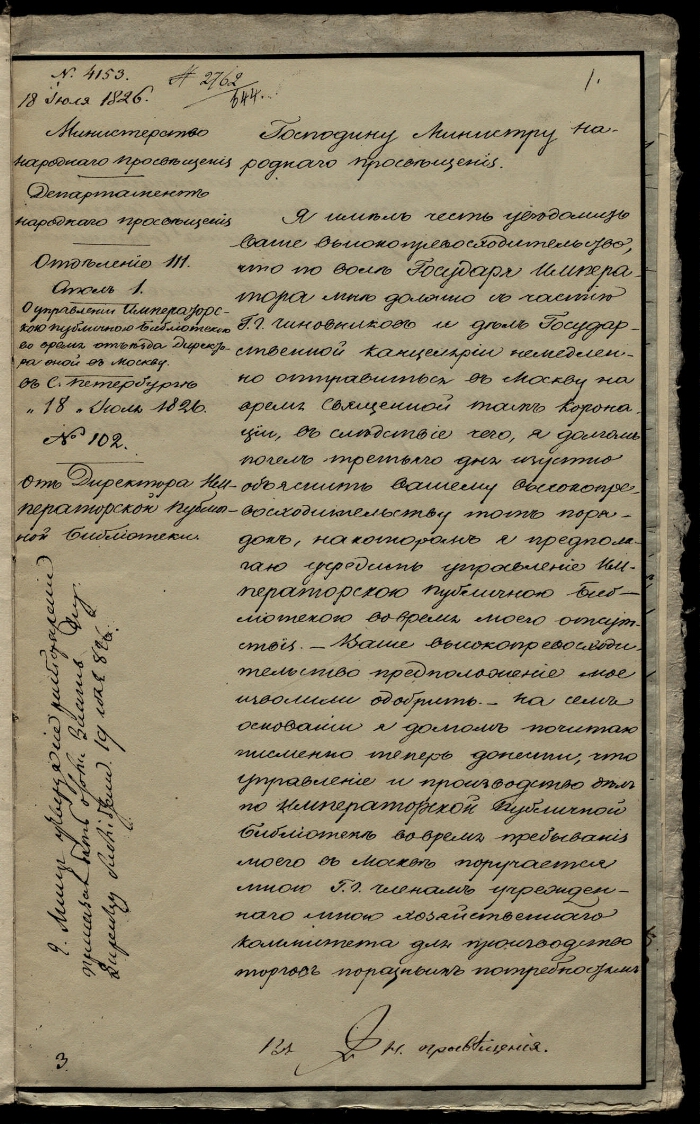 № 4153.
18 Июля 1826.
№ 2762
644.
1.
Министерство
народнаго просвѣщенія
Департаментъ
народнаго просвѣщенія
Отдѣленіе III.
Столъ 1.
О управленіи Императорс-
кою публичною библиотекою
во время отъѣзда Директо-
ра оной въ Москву.
въ С. Петербургѣ
„ 18 „ Июля 1826.
№ 102.
отъ Директора Им-
ператорской Публич-
ной библиотеки.
Господину Министру На-
роднаго просвѣщенія.
Я имѣлъ честь увѣдомить
ваше высокопревосходительство,
что по волѣ Государя Импера-
тора мнѣ должно съ частію
Г.Г. чиновниковъ и дѣлъ Государ-
ственной канцеляріи немедлен-
но отправиться въ Москву на
время священной тамъ корона-
ціи, въ слѣдствіе чего, я долгомъ
почелъ третьяго дня изустно
объяснить вашему высокопре-
восходительству тотъ поря-
докъ, на которомъ я предпола-
гаю учредить управленіе Им-
ператорскою публичною биб-
лиотекою во время моего отсут-
ствія. — Ваше высокопревосходи-
тельство предположеніе мое
изволили одобрить. — на семъ
основаніи я долгомъ почитаю
писменно теперь донести, что
управленіе и производство дѣлъ
по Императорской Публичной
библиотекѣ во время пребыванія
моего въ Москвѣ поручается
мною Г.Г. членамъ учрежден-
наго мною хозяйственнаго
коммитета для производства
торговъ по разнымъ потребностямъ
Г. Минис
приказалъ
19 июля 826.
н. просвѣщенія.
3